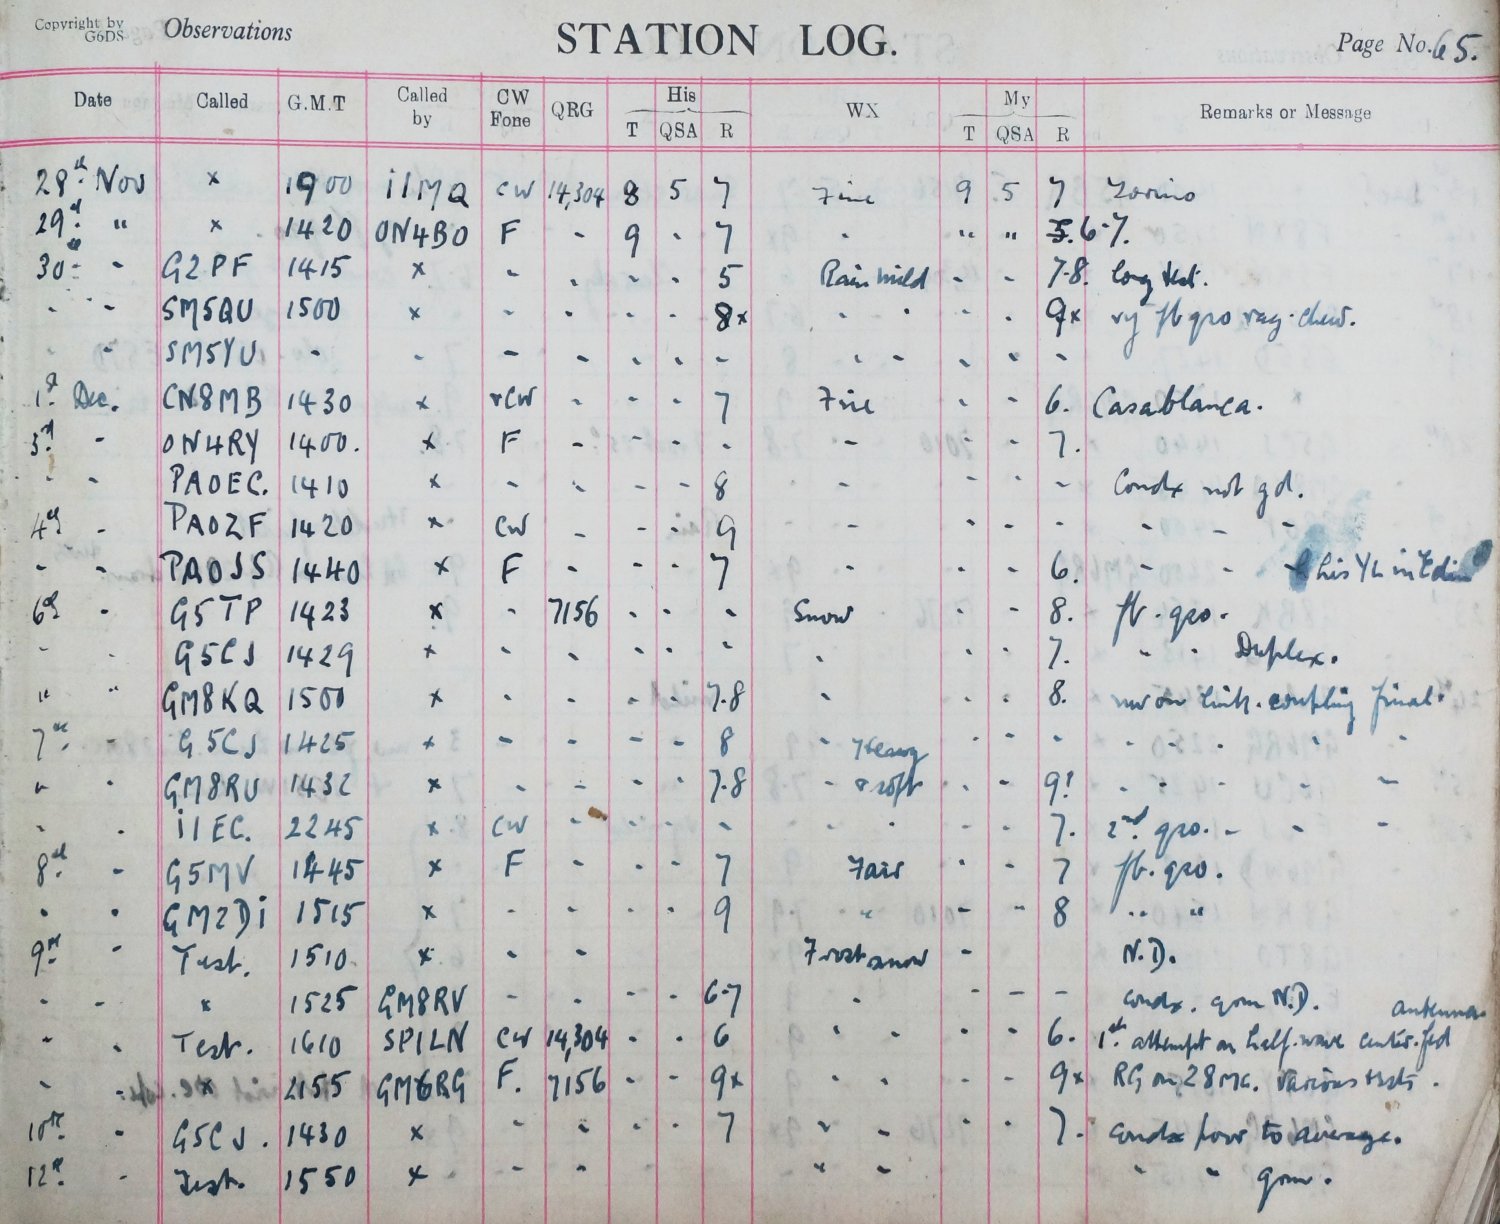 Copyright by G6DS Observations STATION LOG. Page No. 65.
Date Called G.M.T Called by CW Fone QRG His T QSA R WX My T QSA R Remarks or Message
28th Nov x 1900 i1MQ CW 14,304 8 5 7 Fine 9 5 7 Torino
29th " x 1420 ON4BO F - 9 - 7 - " " 6-7.
30th - G2PF 1415 x - - - - 5 Rain mild - - 7-8. long test.
- - SM5QU 1500 x - - - - 8x - - - - 9x vy fb qso rag-chew.
- - SM5YU - - - - - - - - - - - -
1st Dec. CN8MB 1430 x CW - - - 7 Fine - - 6. Casablanca.
3rd - ON4RY 1400. x F - - - - - - - 7.
- - PA0EC. 1410 x - - - - 8 - - - - Condx not gd.
4th - PA0ZF 1420 x CW - - - 9 - - - - - - -
- - PA0JS 1440 x F - - - 7 - - - 6. - - - his YL in Edin
6th - G5TP 1423 x - 7156 - - - Snow - - 8. fb. qso.
- - G5CJ 1429 x - - - - - - - - 7. - - Duplex.
" " GM8KQ 1500 x - - - - 7-8 - - - 8. nw on link-coupling final.
7th - G5CJ 1425 x - - - - 8 - Heavy - - - - - - - -
" - GM8RU 1432 x - - - - 7-8 & soft - - 9! - - - - -
- - i1EC. 2245 x CW - - - - - - - - 7. 2nd. qso. - - -
8th - G5MV 1445 x F - - - 7 Fair - - 7 fb. qso.
- - GM2Di 1515 x - - - - 9 " - - 8 " "
9th - Test. 1510 x - - Frost snow - N.D.
- - x 1525 GM8RV - - - - 6-7 - - - - condx. N.D.
antenna
- - Test. 1610 SP1LN CW 14,304 - - 6 - - - - 6. 1st attempt on half-wave center-fed
- - x 2155 GM6RG F. 7156 - - 9x - - - - 9x RG on 28mc. various tests.
10th. - G5CJ. 1430 x - - - - 7 - - - - 7. condx poor to average.
12th. - Test. 1550 x - - " - " "